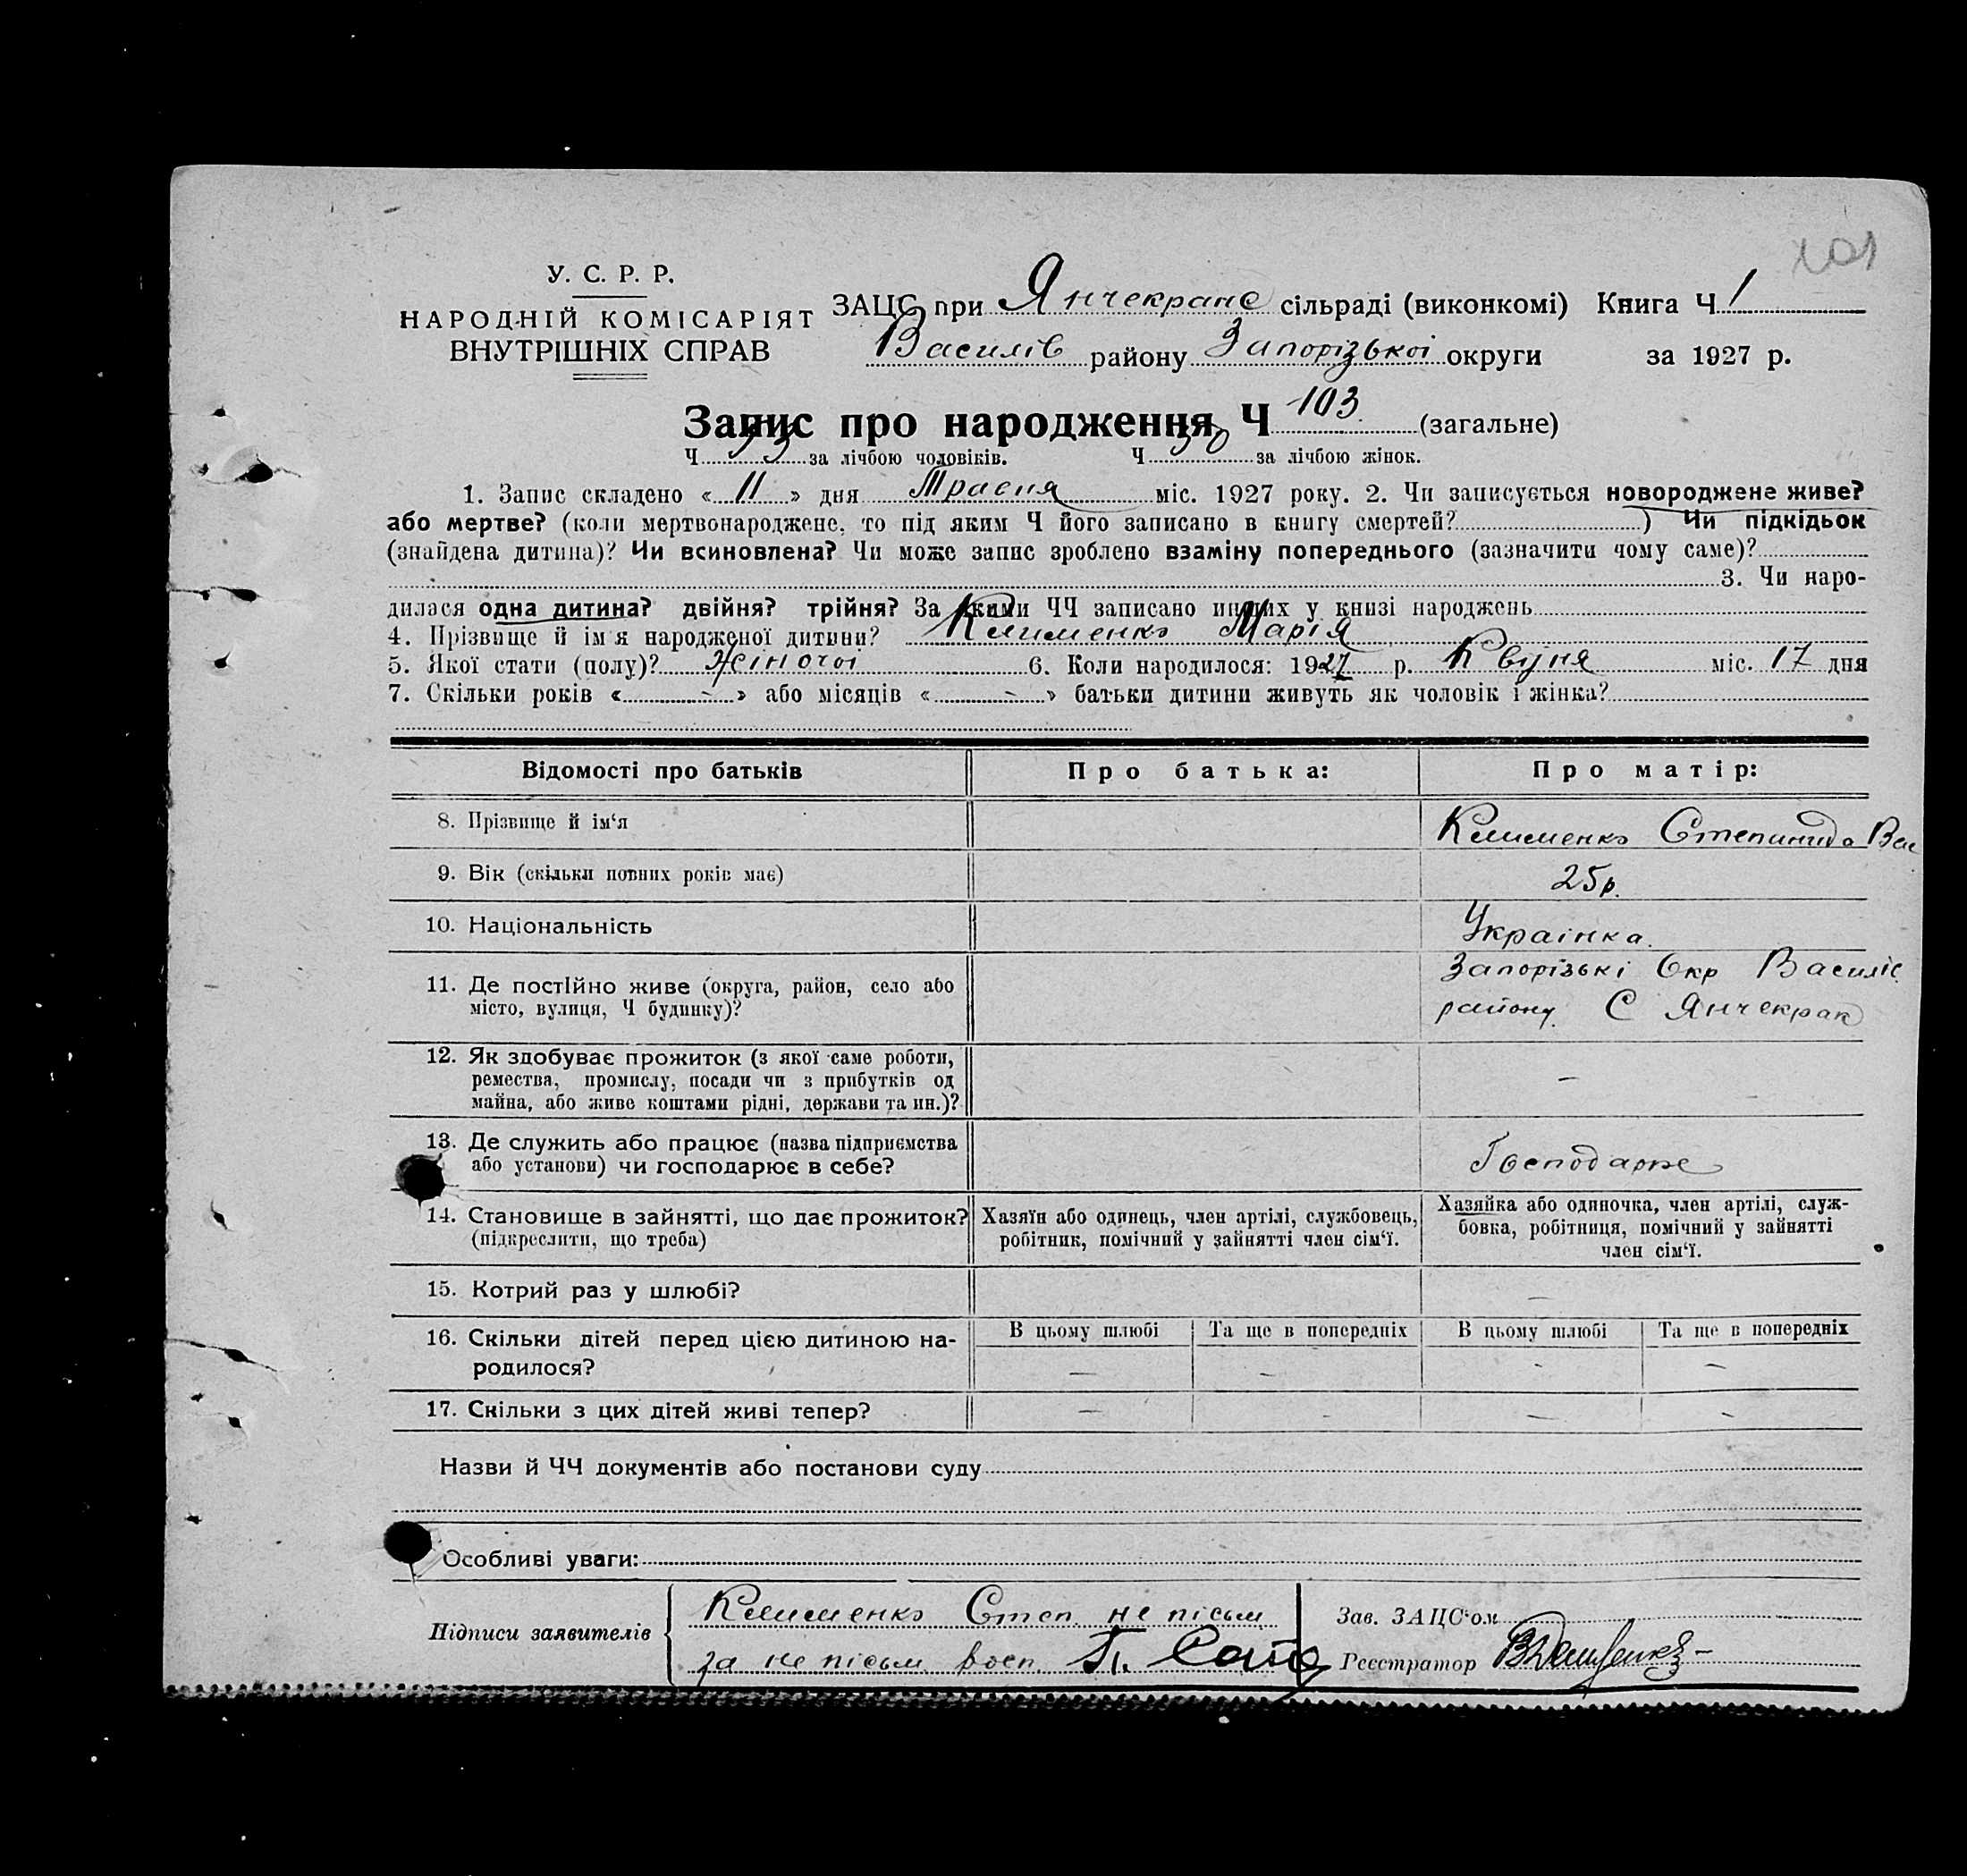 101
У. С. Р. Р.
НАРОДНІЙ КОМІСАРІЯТ
ВНУТРІШНІХ СПРАВ
ЗАЦС при Янчекранс сільраді (виконкомі) Книга Ч 1
Василів району Запорізької округи за 1927 р.
Запис про народження Ч 103 (загальне)
Ч 53 за лічбою чоловіків. Ч 50 за лічбою жінок.
1. Запис складено « 11 » дня Травня міс. 1927 року. 2. Чи записується новороджене живе?
або мертве? (коли мертвонароджене, то під яким Ч його записано в книгу смертей? ) Чи підкідьок
(знайдена дитина)? Чи всиновлена? Чи може запис зроблено взаміну попереднього (зазначити чому саме)?
3. Чи наро-
дилася одна дитина? двійня? трійня? За якими ЧЧ записано инших у книзі народжень
4. Прізвище й ім'я народженої дитини? Клименко Марія
5. Якої стати (полу)? Жіночої 6. Коли народилося: 1927 р. Квітня міс. 17 дня
7. Скільки років « - » або місяців « - » батьки дитини живуть як чоловік і жінка?
Відомості про батьків Про батька: Про матір:
8. Прізвище й ім'я Клименко Степанида Вас
9. Вік (скільки повних років має) 25р.
10. Національність Українка.
11. Де постійно живе (округа, район, село або Запорізькі Окр Василів.
місто, вулиця, Ч будинку)? району. С Янчекрак
12. Як здобуває прожиток (з якої саме роботи,
ремества, промислу, посади чи з прибутків од –
майна, або живе коштами рідні, держави та ин.)?
13. Де служить або працює (назва підприємства
або установи) чи господарює в себе? Господарює
14. Становище в зайнятті, що дає прожиток? Хазяїн або одинець, член артілі, службовець, Хазяйка або одиночка, член артілі, служ-
(підкреслити, що треба) робітник, помічний у зайнятті член сім'ї. бовка, робітниця, помічний у зайнятті
член сім'ї.
15. Котрий раз у шлюбі? –
16. Скільки дітей перед цією дитиною на- В цьому шлюбі Та ще в попередніх В цьому шлюбі Та ще в попередніх
родилося? – – – –
17. Скільки з цих дітей живі тепер? – – – –
Назви й ЧЧ документів або постанови суду
Особливі уваги:
Підписи заявителів
Клименко Степ. не пісьм
за не пісьм
Зав. ЗАЦС'ом
Реєстратор